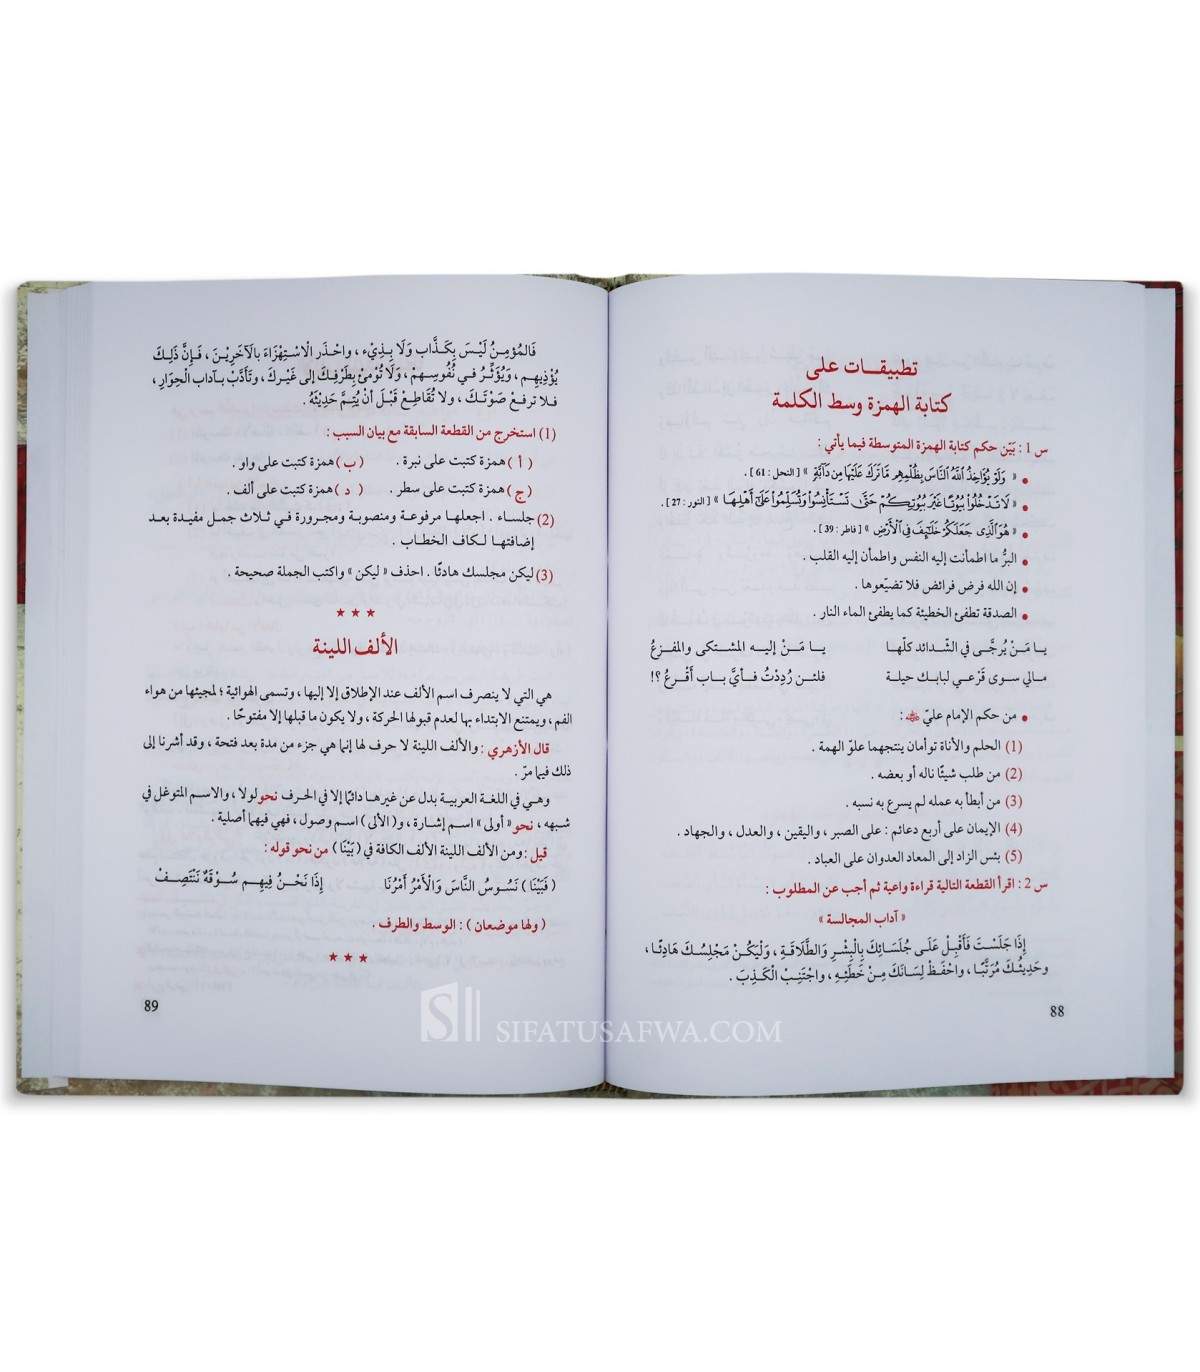 تطبيقات على
كتابة الهمزة وسط الكلمة
س 1 : بَيّن حكم كتابة الهمزة المتوسطة فيما يأتي :
• « وَلَوْ يُؤَاخِذُ اللَّهُ النَّاسَ بِظُلْمِهِم مَّا تَرَكَ عَلَيْهَا مِن دَابَّةٍ » [ النحل : 61 ] .
• « لَا تَدْخُلُوا بُيُوتًا غَيْرَ بُيُوتِكُمْ حَتَّى تَسْتَأْنِسُوا وَتُسَلِّمُوا عَلَى أَهْلِهَا » [ النور : 27 ] .
• « هُوَ الَّذِي جَعَلَكُمْ خَلَائِفَ فِي الْأَرْضِ » [ فاطر : 39 ] .
• البرُّ ما اطمأنت إليه النفس واطمأن إليه القلب .
• إن الله فرض فرائض فلا تضيّعوها .
• الصدقة تطفئ الخطيئة كما يطفئ الماء النار .
يا مَنْ يُرجَّى في الشَّدائد كلّها يا مَنْ إليه المشتكى والمفزعُ
مالي سوى قَرْعي لبابك حيلة فلئن رُدِدْتُ فأيَّ باب أَقْرعُ ؟!
• من حكم الإمام عليّ ﷺ :
(1) الحلم والأناة توأمان ينتجهما علوّ الهمة .
(2) من طلب شيئًا ناله أو بعضه .
(3) من أبطأ به عمله لم يسرع به نسبه .
(4) الإيمان على أربع دعائم : على الصبر ، واليقين ، والعدل ، والجهاد .
(5) بئس الزاد إلى المعاد العدوان على العباد .
س 2 : اقرأ القطعة التالية قراءة واعية ثم أجب عن المطلوب :
« آداب المجالسة »
إِذَا جَلَسْتَ فَأَقْبِلْ عَلَى جُلَسَائِكَ بِالْبِشْرِ وَالطَّلَاقَةِ ، وَلْيَكُنْ مَجْلِسُكَ هَادِئًا ،
وحَدِيثُكَ مُرَتَّبًا ، واحْفَظْ لِسَانَكَ مِنْ خَطَئِهِ ، واجْتَنِبْ الْكَذِبَ .
88
فَالمُؤمِنُ لَيْسَ بِكَذَّاب وَلَا بِذِيْء ، واحْذَرِ الْاسْتِهْزَاءَ بِالآخَرِيْنَ ، فَإِنَّ ذَلِكَ
يُؤْذِيهِم ، وَيُؤَثِّرُ في نُفُوسِهِمْ ، وَلَا تُوْمِئْ بِطَرْفِكَ إلى غَيْرِكَ ، وتَأَدَّبْ بآداب الحِوَارِ ،
فلا ترفعْ صَوْتَكَ ، ولا تُقَاطِعْ قَبْلَ أَنْ يُتِمَّ حَدِيْثَهُ .
(1) استخرج من القطعة السابقة مع بيان السبب :
( أ ) همزة كتبت على نبرة . ( ب ) همزة كتبت على واو .
( ج ) همزة كتبت على سطر . ( د ) همزة كتبت على ألف .
(2) جلساء . اجعلها مرفوعة ومنصوبة ومجرورة في ثلاث جمل مفيدة بعد
إضافتها لكاف الخطاب .
(3) ليكن مجلسك هادئًا . احذف « ليكن » واكتب الجملة صحيحة .
★ ★ ★
الألف اللينة
هي التي لا ينصرف اسم الألف عند الإطلاق إلا إليها ، وتسمى الهوائية ؛ لمجيئها من هواء
الفم ، ويمتنع الابتداء بها لعدم قبولها الحركة ، ولا يكون ما قبلها إلا مفتوحًا .
قال الأزهري : والألف اللينة لا حرف لها إنما هي جزء من مدة بعد فتحة ، وقد أشرنا إلى
ذلك فيما مرّ .
وهي في اللغة العربية بدل عن غيرها دائمًا إلا في الحرف نحو لولا ، والاسم المتوغل في
شبهه ، نحو « أولى » اسم إشارة ، و( الألى ) اسم وصول ، فهي فيهما أصلية .
قيل : ومن الألف اللينة الألف الكافة في ( بَيْنَا ) من نحو قوله :
( فَبَيْنَا ) نَسُوسُ النَّاسَ وَالْأَمْرُ أَمْرُنَا إِذَا نَحْنُ فِيهِم سُوْقَةٌ نَتَنَصِفُ
( ولها موضعان ) : الوسط والطرف .
★ ★ ★
89
SIFATUSAFWA.COM